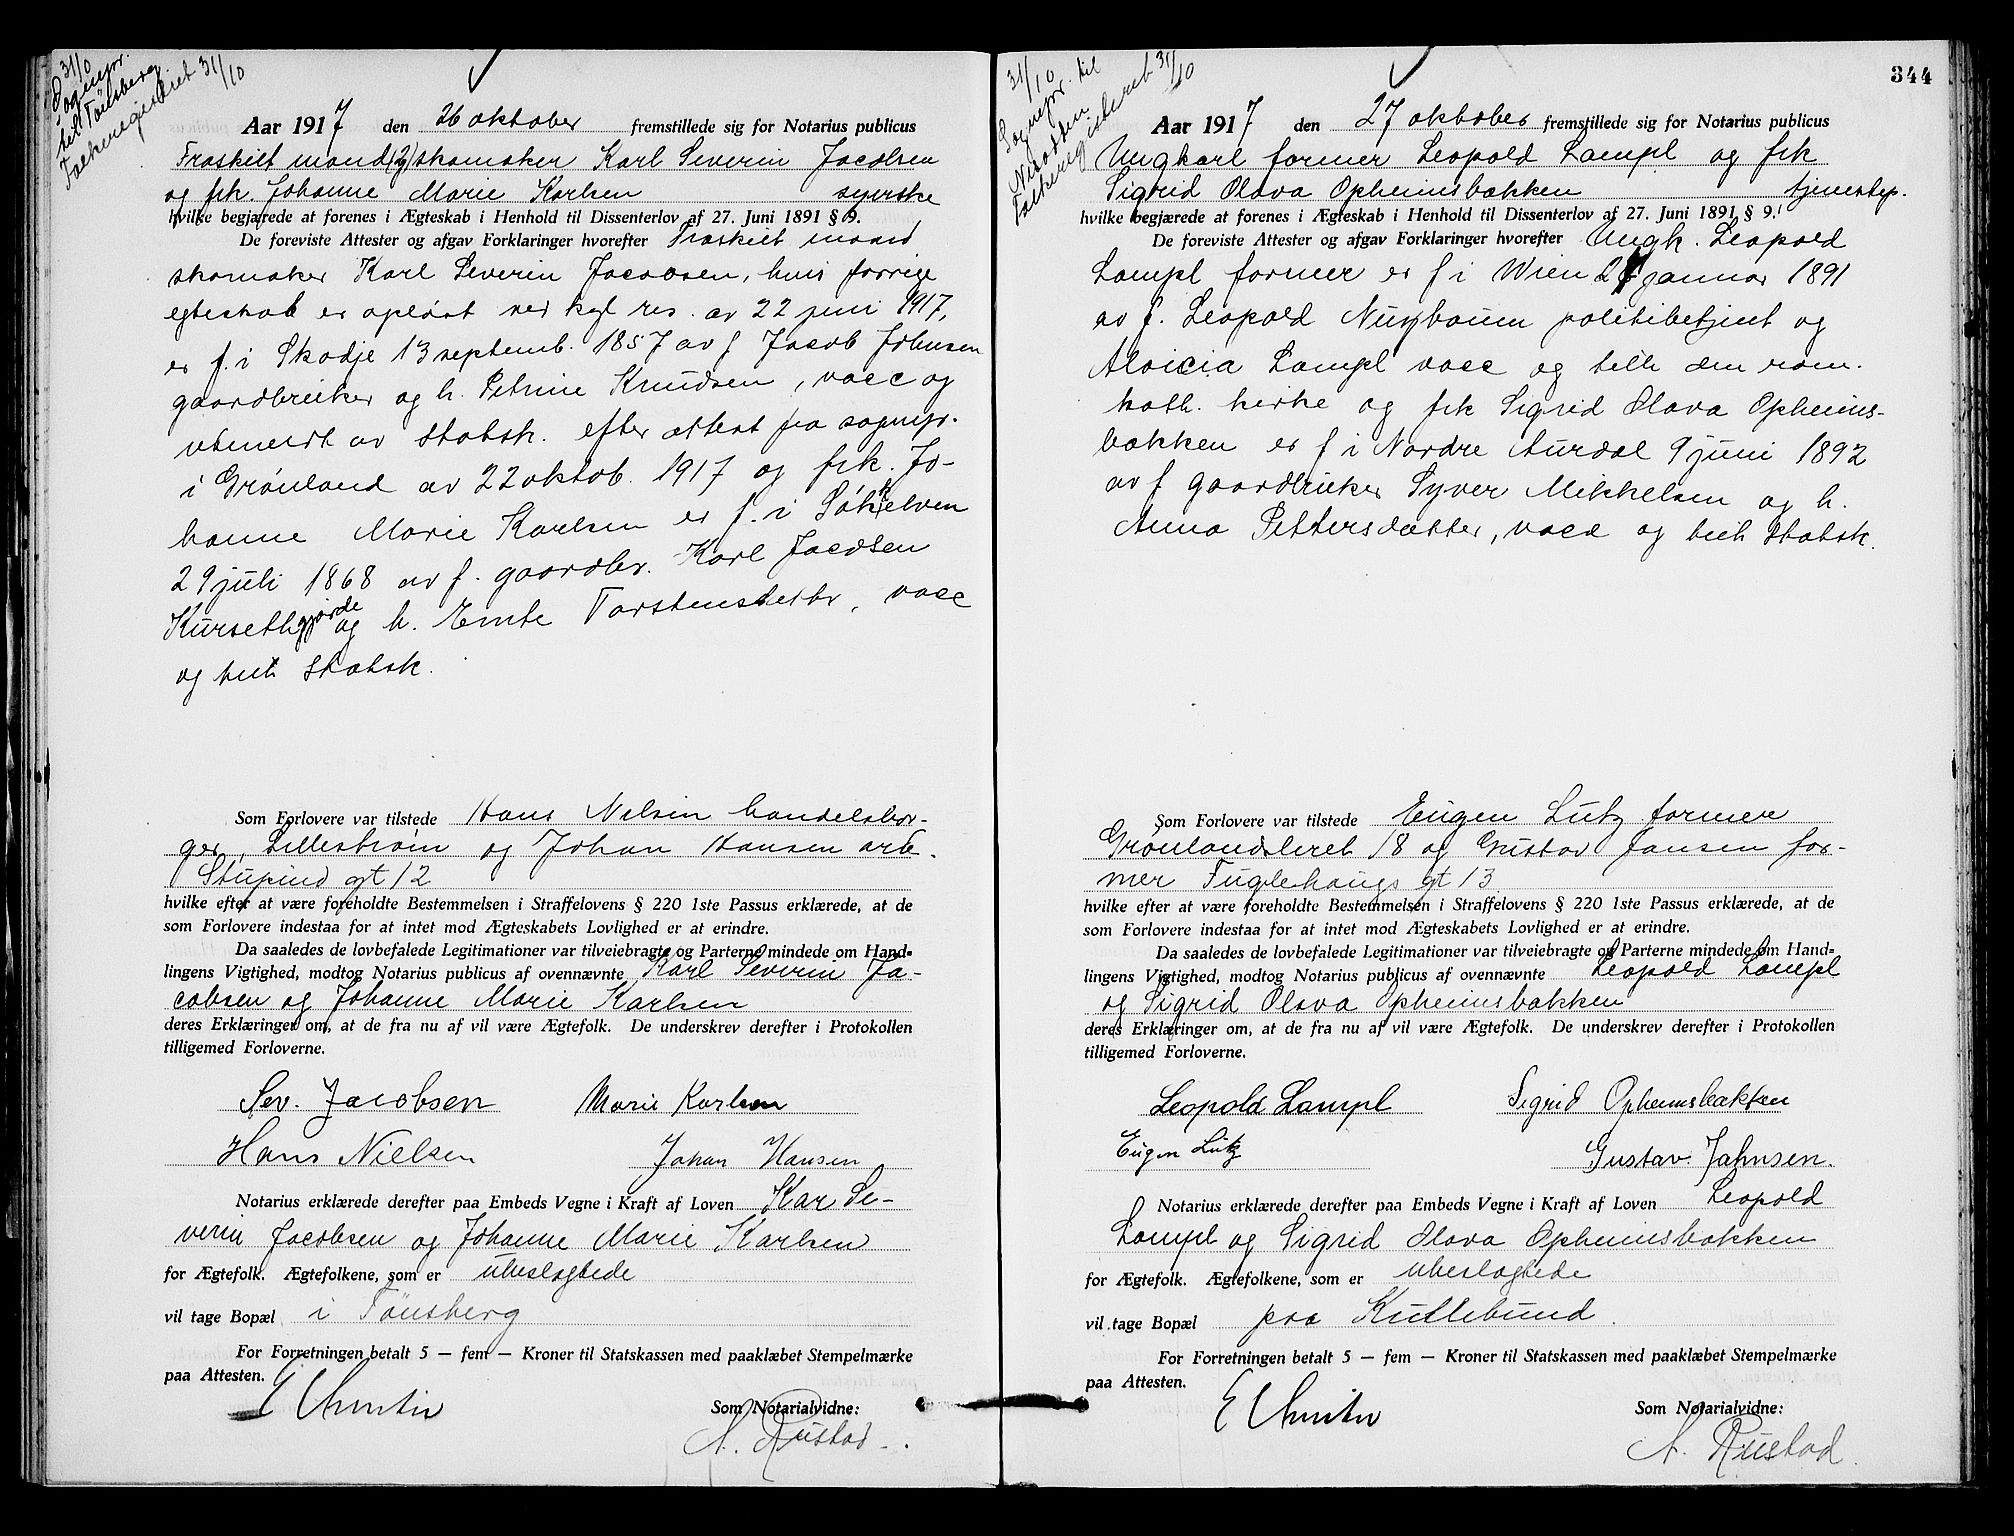 31/10
Sognepr.
til Tönsberg
Folkeregisteret 31/10
Aar 1917 den 26 oktober fremstillede sig for Notarius publicus
Fraskilt mand (2) skomaker Karl Severin Jacobsen
og frk. Johanne Marie Karlsen syerske
hvilke begjærede at forenes i Ægteskab i Henhold til Dissenterlov af 27. Juni 1891 § 9.
De foreviste Attester og afgav Forklaringer hvorefter Fraskilt mand
skomaker Karl Severin Jacobsen, hvis forrige
egteskab er opløst ved kgl res. av 22 juni 1917,
er f. i Skodje 13 septemb. 1857 av f Jacob Johnsen
gaardbruker og h. Petrine Knudsen, vacc og
utmeldt av statsk. efter attest fra sognepr.
i Grønland av 22 oktob. 1917 og frk. Jo-
hanne Marie Karlsen er f. i Søkkelven
29 juli 1868 av f. gaardbr. Karl Jacobsen
Kursethgjærde og h. Emte Torstensdatter, vacc
og tilh statsk.
Som Forlovere var tilstede Hans Nilsen handelsbor-
ger, Lillestrøm og Johan Hansen arb.
Stupind gt 12
hvilke efter at være foreholdte Bestemmelsen i Straffelovens § 220 1ste Passus erklærede, at de
som Forlovere indestaa for at intet mod Ægteskabets Lovlighed er at erindre.
Da saaledes de lovbefalede Legitimationer var tilveiebragte og Parterne mindede om Hand-
lingens Vigtighed, modtog Notarius publicus af ovennævnte Karl Severin Ja-
cobsen og Johanne Marie Karlsen
deres Erklæringer om, at de fra nu af vil være Ægtefolk. De underskrev derefter i Protokollen
tilligemed Forloverne.
Sev. Jacobsen Marie Karlsen
Hans Nielsen Johan Hansen
Notarius erklærede derefter paa Embeds Vegne i Kraft af Loven Kar Se-
verin Jacobsen og Johanne Marie Karlsen
for Ægtefolk. Ægtefolkene, som er ubeslægtede
vil tage Bopæl i Tönsberg
For Forretningen betalt 5 — fem — Kroner til Statskassen med paaklæbet Stempelmærke
paa Attesten.
Som Notarialvidne:
A. Rustad
344
31/10
Sognepr. til
Notodden
Folkeregisteret 31/10
Aar 1917 den 27 oktober fremstillede sig for Notarius publicus
Ungkarl former Leopold Lampl og frk
Sigrid Olava Opheimsbakken tjenestep.
hvilke begjærede at forenes i Ægteskab i Henhold til Dissenterlov af 27. Juni 1891 § 9.
De foreviste Attester og afgav Forklaringer hvorefter Ungk. Leopold
Lampl former er f i Wien 21 januar 1891
av f. Leopold Nuszbaum politibetjent og
Aloicia Lampl vacc og tilh den rom.
kath. kirke og frk Sigrid Olava Opheims-
bakken er f i Nordre Aurdal 9 juni 1892
av f gaardbruker Syver Mikkelsen og h.
Anna Pettersdatter, vacc og tilh statsk.
Som Forlovere var tilstede Eugen Lutz former
Grønlandsleret 18 og Gustav Jansen for-
mer Fuglehaugs gt 13
hvilke efter at være foreholdte Bestemmelsen i Straffelovens § 220 1ste Passus erklærede, at de
som Forlovere indestaa for at intet mod Ægteskabets Lovlighed er at erindre.
Da saaledes de lovbefalede Legitimationer var tilveiebragte og Parterne mindede om Hand-
lingens Vigtighed, modtog Notarius publicus af ovennævnte Leopold Lampl
og Sigrid Olava Opheimsbakken
deres Erklæringer om, at de fra nu af vil være Ægtefolk. De underskrev derefter i Protokollen
tilligemed Forloverne.
Leopold Lampl Sigrid Opheimsbakken
Eugen Lutz Gustav Jahnsen.
Notarius erklærede derefter paa Embeds Vegne i Kraft af Loven Leopold
Lampl og Sigrid Olava Opheimsbakken
for Ægtefolk. Ægtefolkene, som er ubeslægtede
vil tage Bopæl paa Kullebund
For Forretningen betalt 5 — fem — Kroner til Statskassen med paaklæbet Stempelmærke
paa Attesten.
Som Notarialvidne:
A. Rustad